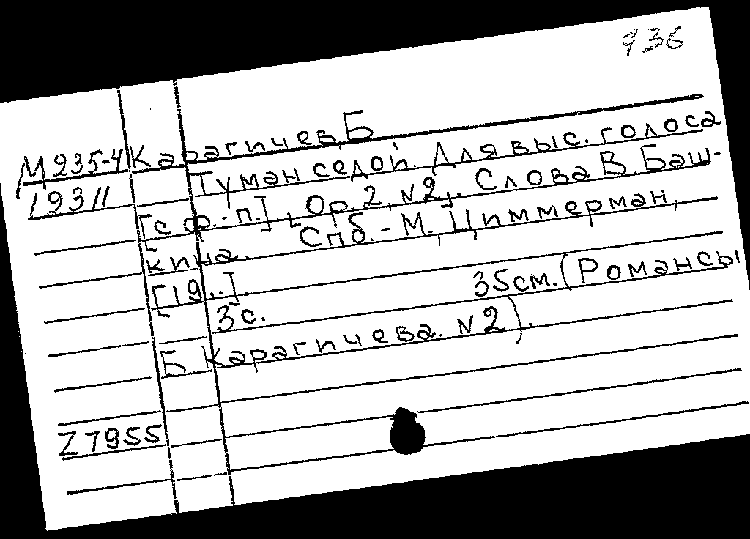 936
М235-4 Карагичев, Б
19311 Туман седой. Для выс. голоса
[с ф.-п.], Ор. 2, №2. Слова В. Баш-
кина. Спб. - М., Циммерман,
[19..].
3 с. 35 см. (Романсы
Б Карагичева. №2).
Z7955